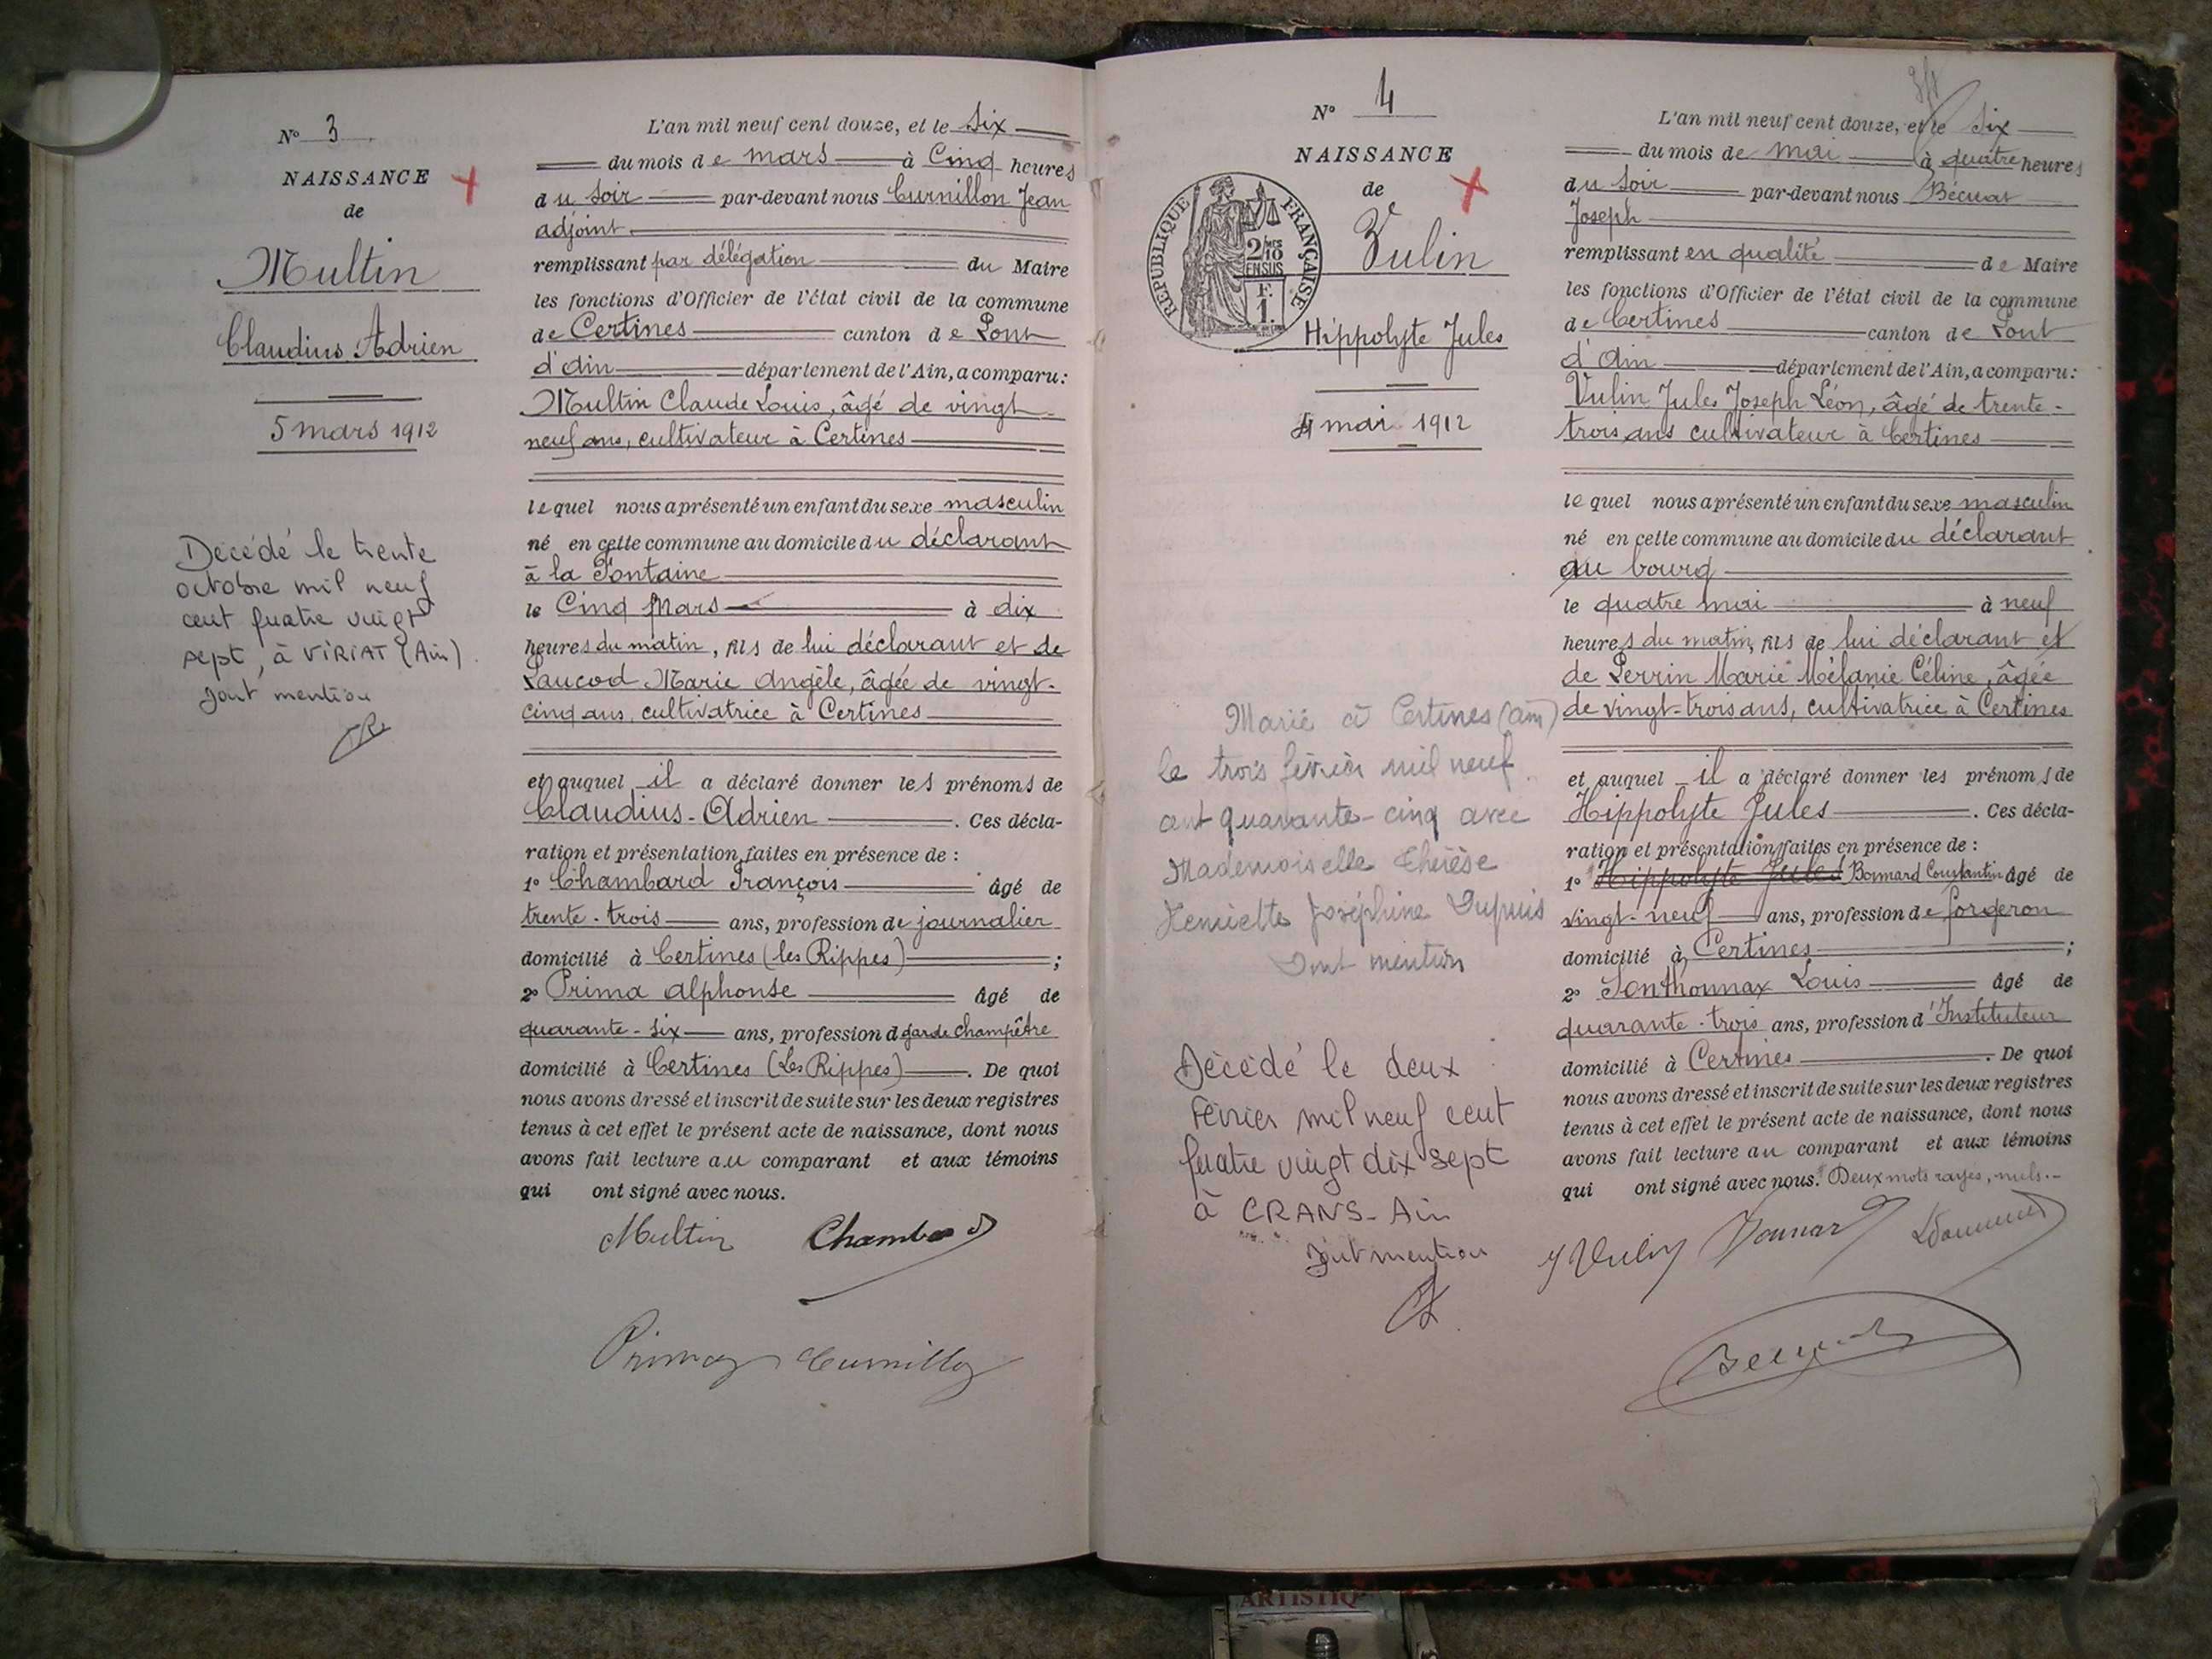 N° 3
NAISSANCE
de
Multin
Claudius Adrien
5 mars 1912
Décédé le trente
octobre mil neuf
cent quatre vingt
sept, à VIRIAT (Ain).
Dont mention
L'an mil neuf cent douze, et le six
du mois de mars à Cinq heures
du soir par-devant nous Curnillon Jean
adjoint
remplissant par délégation du Maire
les fonctions d'Officier de l'état civil de la commune
de Certines canton de Pont
d'Ain département de l'Ain, a comparu:
Multin Claude Louis, âgé de vingt-
neuf ans, cultivateur à Certines
lequel nous a présenté un enfant du sexe masculin
né en cette commune au domicile du déclarant
à la Fontaine
le Cinq Mars à dix
heures du matin, fils de lui déclarant et de
Laucod Marie Angèle, âgée de vingt-
cinq ans, cultivatrice à Certines
et auquel il a déclaré donner les prénoms de
Claudius-Adrien. Ces décla-
ration et présentation faites en présence de :
1° Chambard François âgé de
trente-trois ans, profession de journalier
domicilié à Certines (les Rippes);
2° Prima alphonse âgé de
quarante-six ans, profession d garde champêtre
domicilié à Certines (Les Rippes). De quoi
nous avons dressé et inscrit de suite sur les deux registres
tenus à cet effet le présent acte de naissance, dont nous
avons fait lecture au comparant et aux témoins
qui ont signé avec nous.
Multin Chambard
Prima Curnillon
N° 4
NAISSANCE
de
REPUBLIQUE FRANÇAISE
2/10
EN SUS
F.
1.
Vulin
Hippolyte Jules
4 mai 1912
Marié à Certines (Ain)
le trois février mil neuf
cent quarante-cinq avec
Mademoiselle Thérèse
Henriette Joséphine Dupuis
Dont mention
Décédé le deux
Février mil neuf cent
quatre vingt dix sept
à CRANS-Ain
Dont mention
L'an mil neuf cent douze, et le six
du mois de mai à quatre heures
du soir par-devant nous Bécuat
Joseph
remplissant en qualité de Maire
les fonctions d'Officier de l'état civil de la commune
de Certines canton de Pont
d'Ain département de l'Ain, a comparu:
Vulin Jules Joseph Léon, âgé de trente-
trois ans cultivateur à Certines
lequel nous a présenté un enfant du sexe masculin
né en cette commune au domicile du déclarant
au bourg
le quatre mai à neuf
heures du matin, fils de lui déclarant et
de Perrin Marie Mélanie Céline, âgée
de vingt-trois ans, cultivatrice à Certines
et auquel il a déclaré donner les prénoms de
Hippolyte Jules. Ces décla-
ration et présentation faites en présence de :
1° Hippolyte Jules Bonnard Constantin âgé de
vingt-neuf ans, profession de forgeron
domicilié à Certines;
2° Sonthonnax Louis âgé de
quarante-trois ans, profession d'Instituteur
domicilié à Certines. De quoi
nous avons dressé et inscrit de suite sur les deux registres
tenus à cet effet le présent acte de naissance, dont nous
avons fait lecture au comparant et aux témoins
qui ont signé avec nous. Deux mots rayés, nuls.-
J Vulin Bonnard
Bécuat
ARTISTIQ